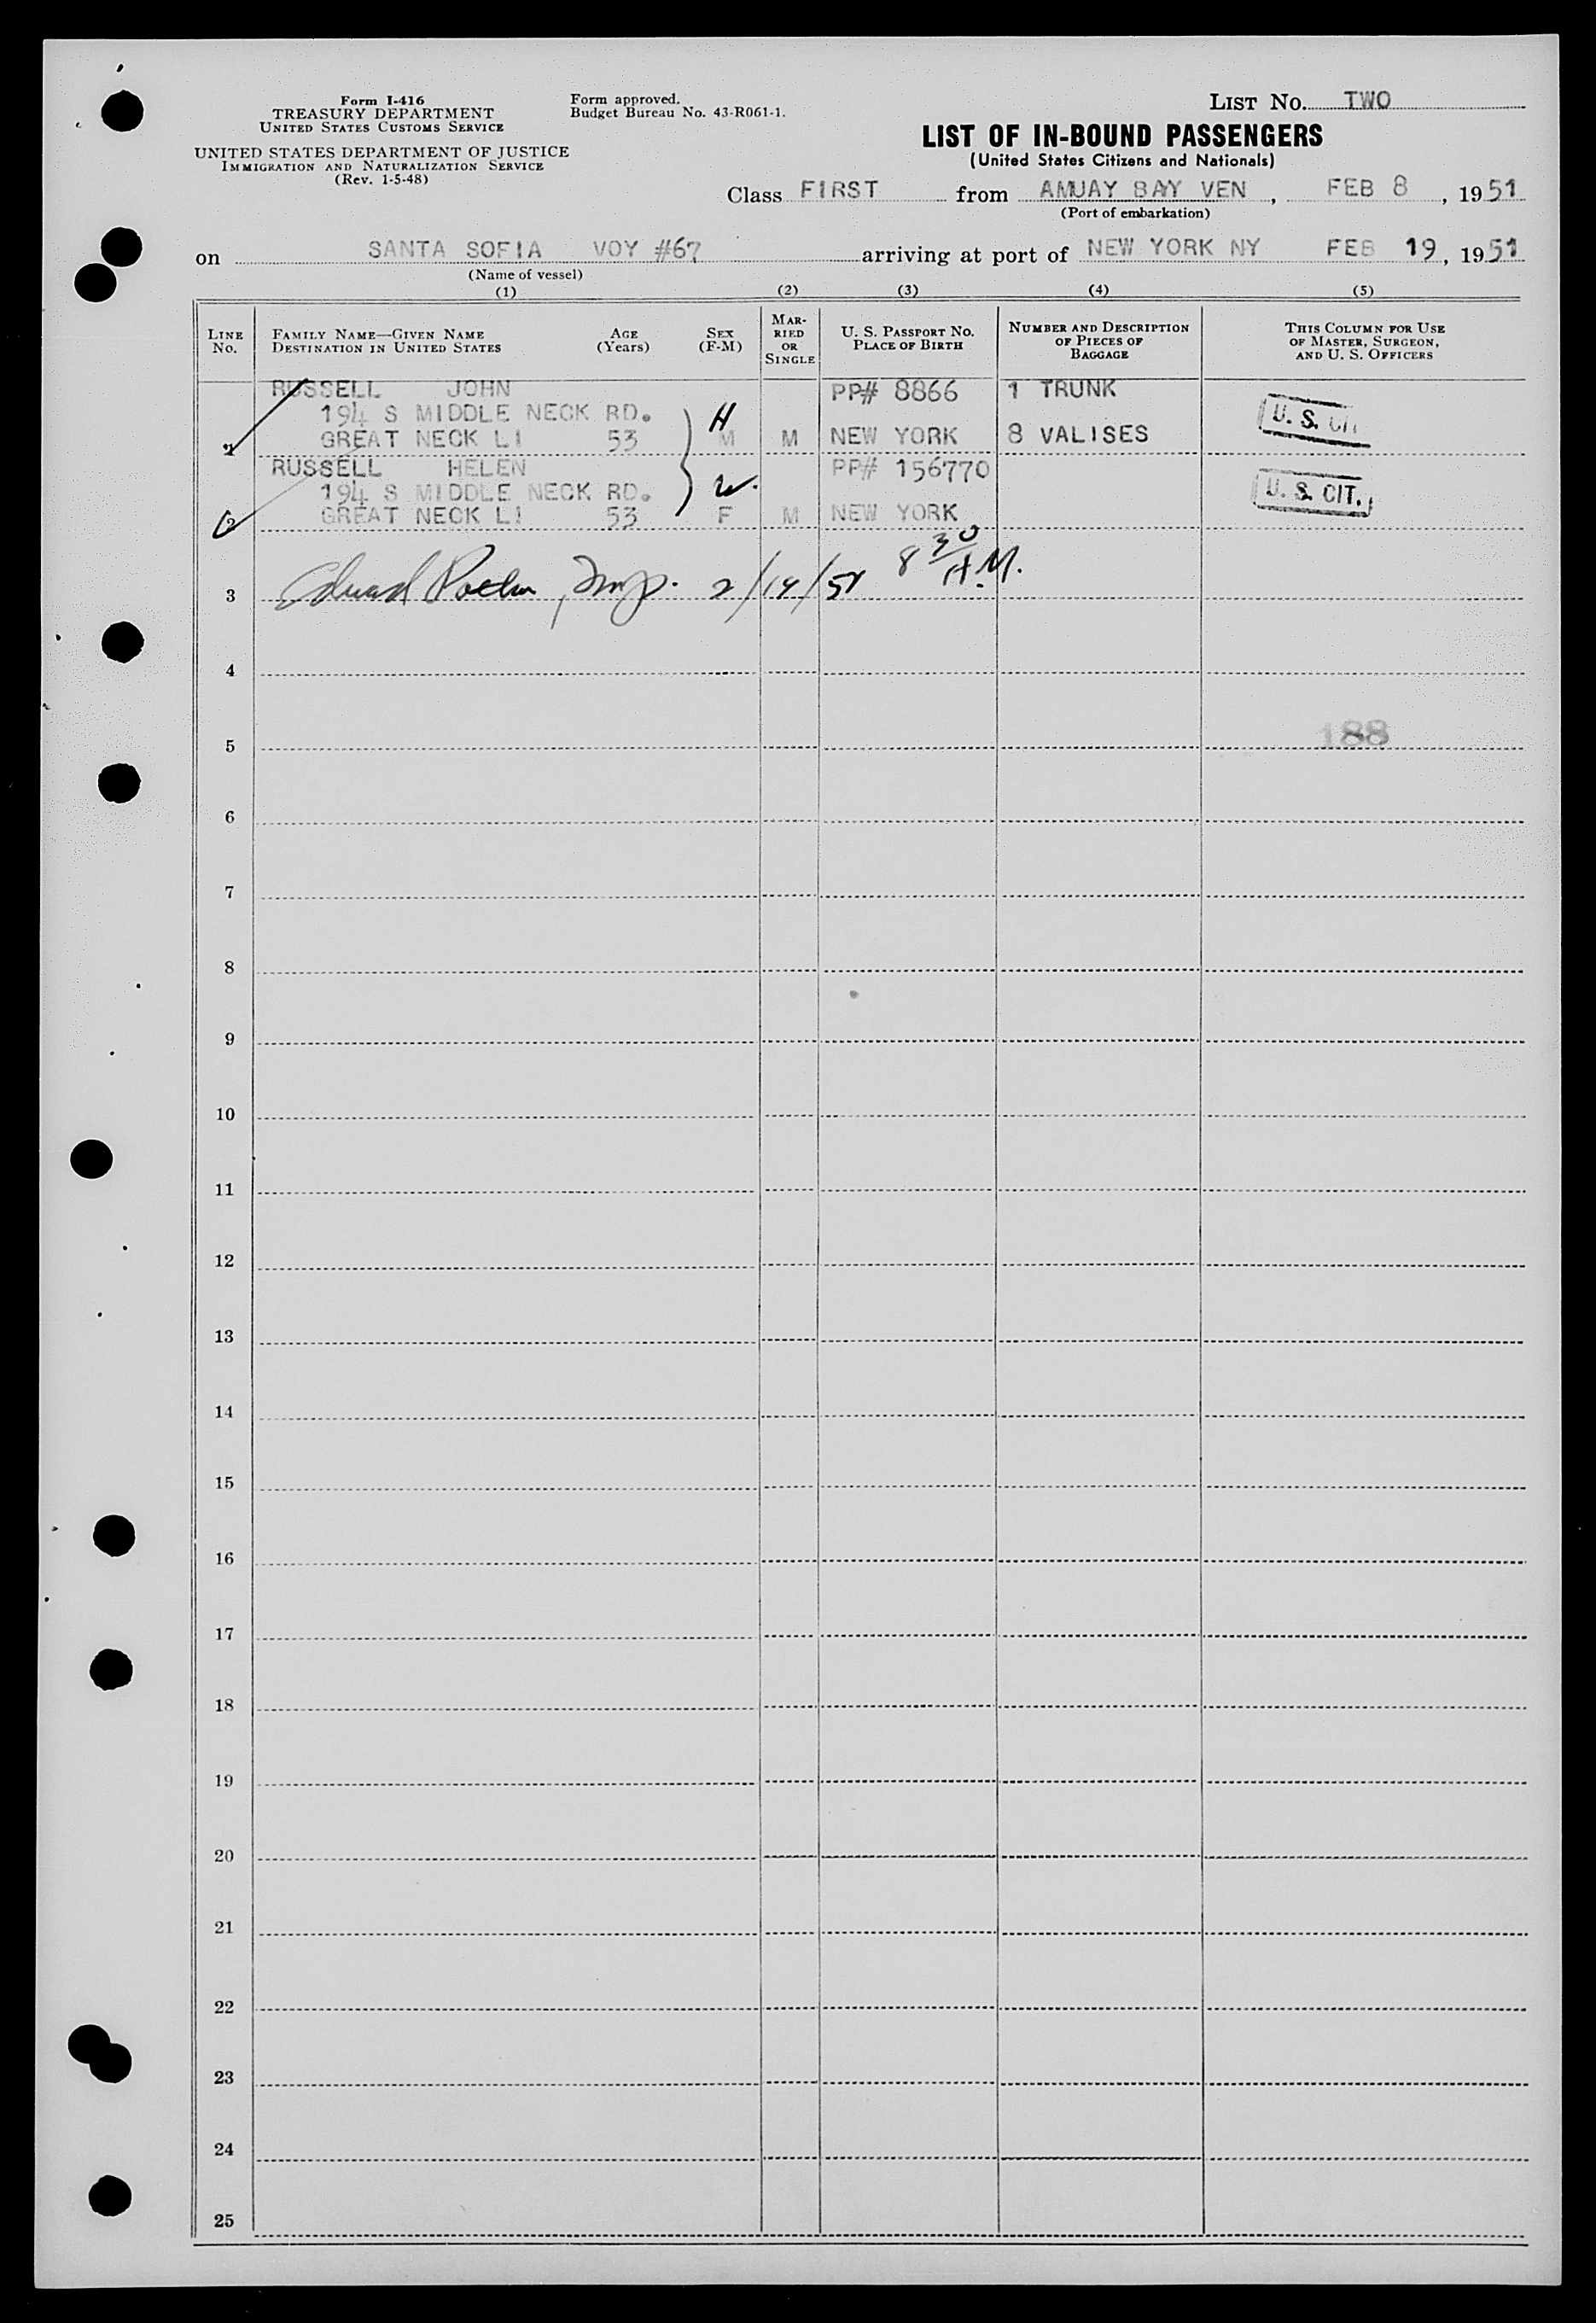 Form I-416
TREASURY DEPARTMENT
UNITED STATES CUSTOMS SERVICE
UNITED STATES DEPARTMENT OF JUSTICE
IMMIGRATION AND NATURALIZATION SERVICE
(Rev. 1-5-48)
Form approved.
Budget Bureau No. 43-R061-1.
LIST No. TWO
LIST OF IN-BOUND PASSENGERS
(United States Citizens and Nationals)
Class FIRST from AMUAY BAY VEN, FEB 8, 1951
(Port of embarkation)
on SANTA SOFIA VOY #67 arriving at port of NEW YORK NY FEB 19, 1951
(Name of vessel)
(1) (2) (3) (4) (5)
LINE No.
FAMILY NAME—GIVEN NAME
DESTINATION IN UNITED STATES
AGE
(Years)
SEX
(F-M)
MARRIED OR SINGLE
U. S. PASSPORT No.
PLACE OF BIRTH
NUMBER AND DESCRIPTION
OF PIECES OF
BAGGAGE
THIS COLUMN FOR USE
OF MASTER, SURGEON,
AND U. S. OFFICERS
RUSSELL JOHN PP# 8866 1 TRUNK
194 S MIDDLE NECK RD. H U. S.
1 GREAT NECK LI 53 M M NEW YORK 8 VALISES
RUSSELL HELEN PP# 156770
194 S MIDDLE NECK RD. W. U. S. CIT.
2 GREAT NECK LI 53 F M NEW YORK
3 2/19/51 8 30 A.M.
4
5 188
6
7
8
9
10
11
12
13
14
15
16
17
18
19
20
21
22
23
24
25